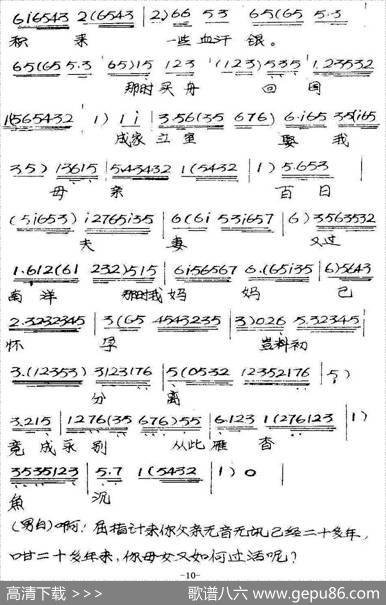 6i6543 2(6543 | 2)66 53 65(65 5.3
积来 一些血汗银。
65(65 5.3 65)15 123 (123)535 1.23532
那时买舟 回国
1)565432 1) 1 i | 3.56(35 676) 6.i65 35(i65
成家立室 娶我
35) 13615 5.43432 1(5432 | 1) 5.653
母亲 百日
(5i653) i2765i35 | 6(6i 53i657 | 6) 3563532
夫妻 又过
1.612(61 232)515 | 6i56567 6.(65i35 | 6)5643
南洋 那时我妈妈已
2.3232345 | 3(65 4543235 | 3)026 5.32345
怀孕 岂料初
3.(12353) 3123176 | 5(0532 12352176 | 5)
分离
3.215 | 1276(35 676)55 | 6.123 1(276123 | 1)
竟成永别 从此雁杳
3535123 | 5.7 1(5432 | 1) 0
魚沉
(男白)啊!屈指计来你父亲无音无讯已经二十多年,
咁二十多年来,你母女又如何过活呢?
-10-
高清下载 >>> 歌谱八六 www.gepu86.com